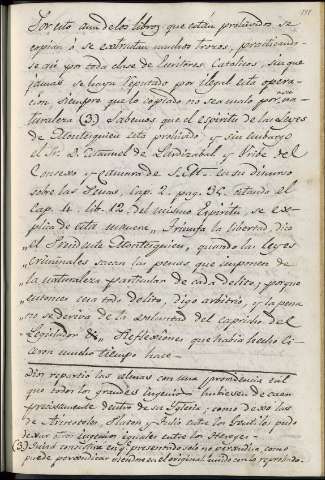 Por esto aun de los libros, que estan prohividos se
copian, ó se extractan muchos trozos, practicando-
se asi por toda clase de Escritores Catolicos, sin que
jamas se haya reputado por ilegal esta opera-
cion, siempre que lo copiado no sea malo por na-
turaleza (3) Sabemos que el espiritu de las Leyes
de Montesquieu està prohivido y sin embargo
el Sr. D. Manuel de Lardizabal y Uribe del
Consexo, y camara de S.M. en su discurso
sobre las Penas, Cap. 2. pag. 36. citando al
Cap. 4. lib. 12. del mismo Espiritu, se ex-
plica de esta manera, Triunfa la libertad, dice
„ el Presidente Montesquieu, quando las leyes
„ Criminales sacan las penas que imponen de
„ la naturaleza particular de cada delito; porque
„ entonces cesa todo delito, digo arbitrio, y la pena
„ no se deriva de la voluntad del capricho del
Legislador &„ Reflexiones que habia hecho Ci-
ceron mucho tiempo hace
Dios repartió las almas con una providencia tal
que todos los grandes Ingenios hubiesen de caer
precisamente dentro de su Iglesia; como dexo los
de Aristoteles, Platon y Tulio entre los Gentiles pudo
dexar otros Ingenios iguales entre los Hereges